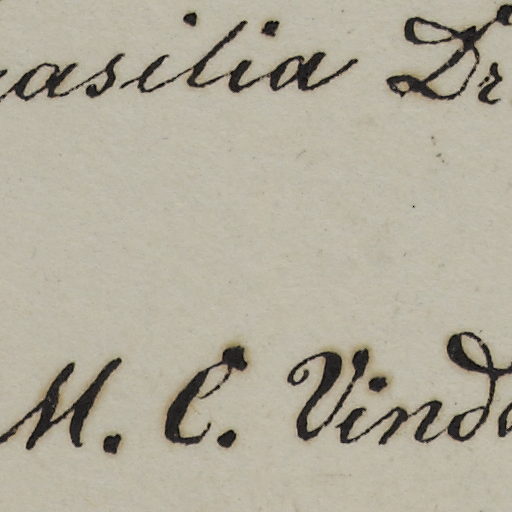 asilia Dr
M. C. Vind